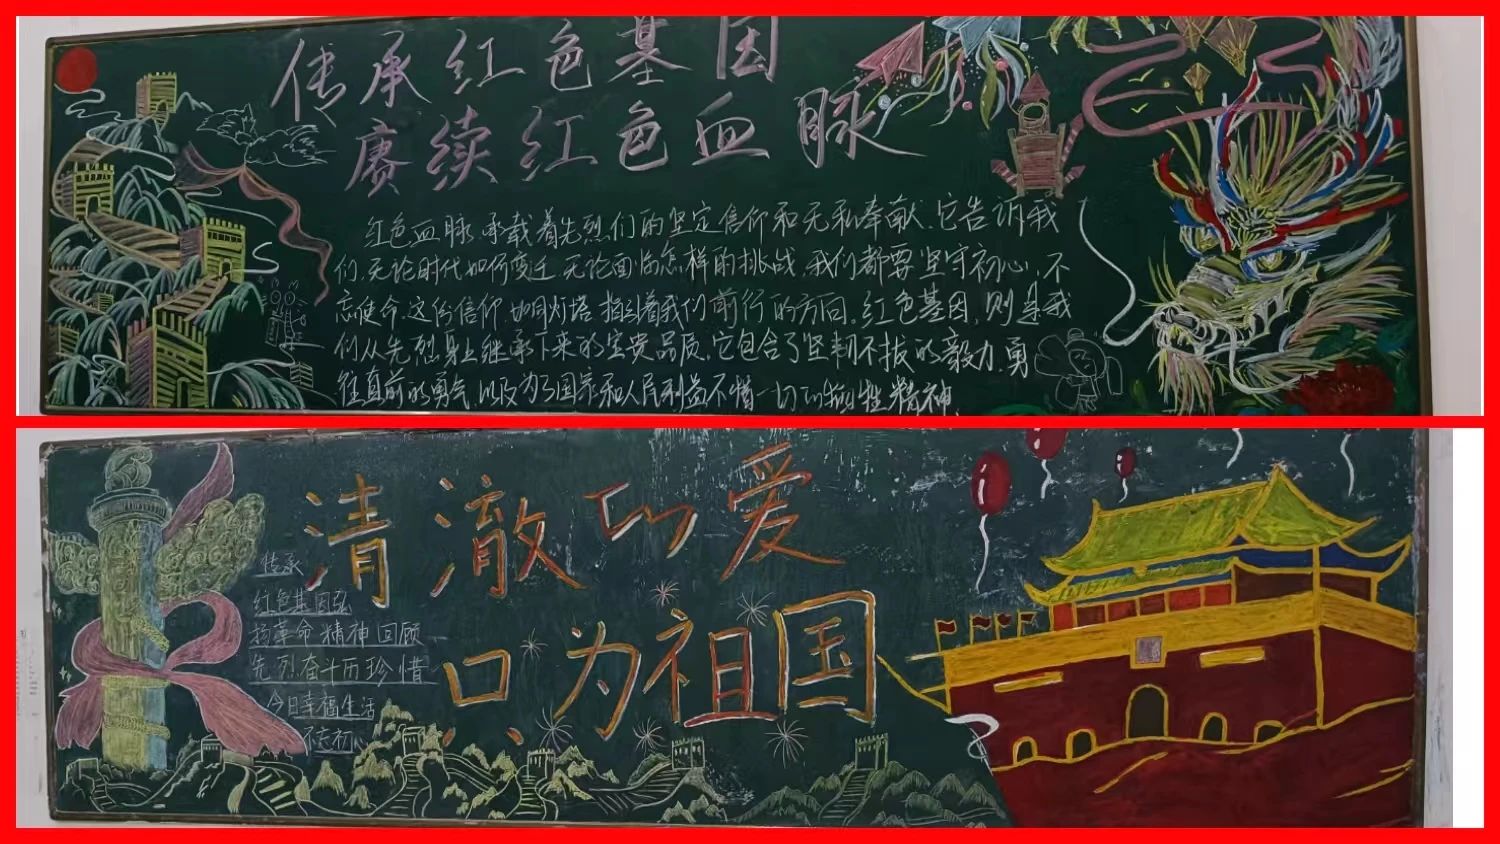 传承红色基因
赓续红色血脉
红色血脉,承载着先烈们的坚定信仰和无私奉献.它告诉我
们,无论时代如何变迁,无论面临怎样的挑战,我们都要坚守初心,不
忘使命.这份信仰如同灯塔,指引着我们前行的方向。红色基因,则是我
们从先烈身上继承下来的宝贵品质,它包含了坚韧不拔的毅力,勇
往直前的勇气,以及为了国家和人民利益不惜一切的牺牲精神.
清澈的爱
只为祖国
传承
红色基因弘
扬革命精神回顾
先烈奋斗历珍惜
今日幸福生活
不忘初心